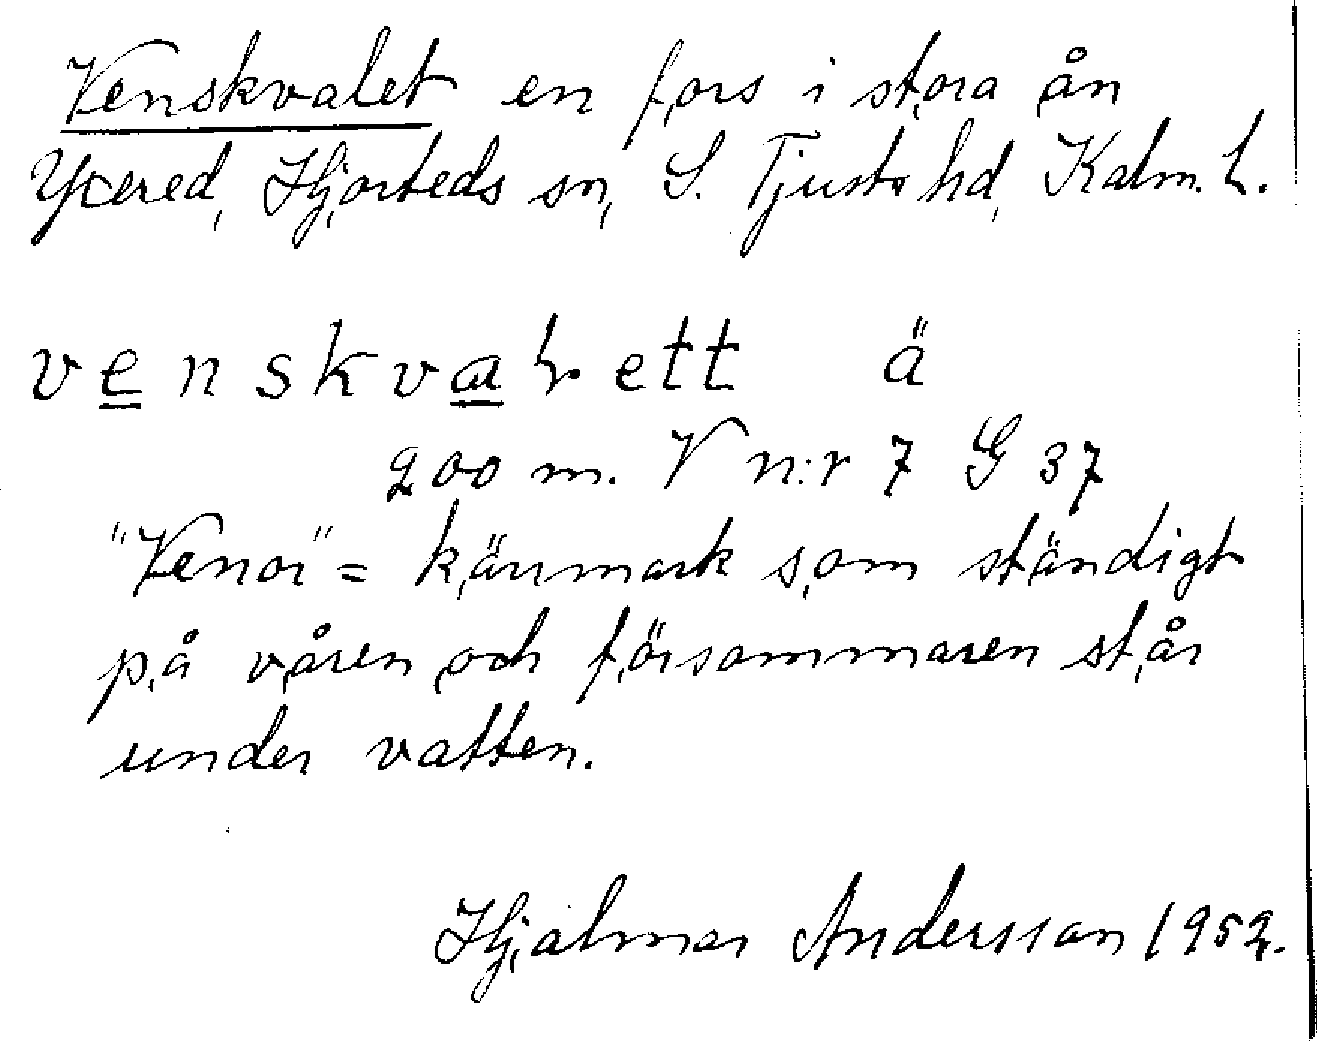 Venskvalet en fors i stora ån
Yxered, Hjorteds sn, S. Tjusts hd, Kalm. L.
venskvaLett ä
200 m. V n:r 7 G 37
"Venor" = kärrmark som ständigt
på våren och försommaren står
under vatten.
Hjalmar Andersson 1952.